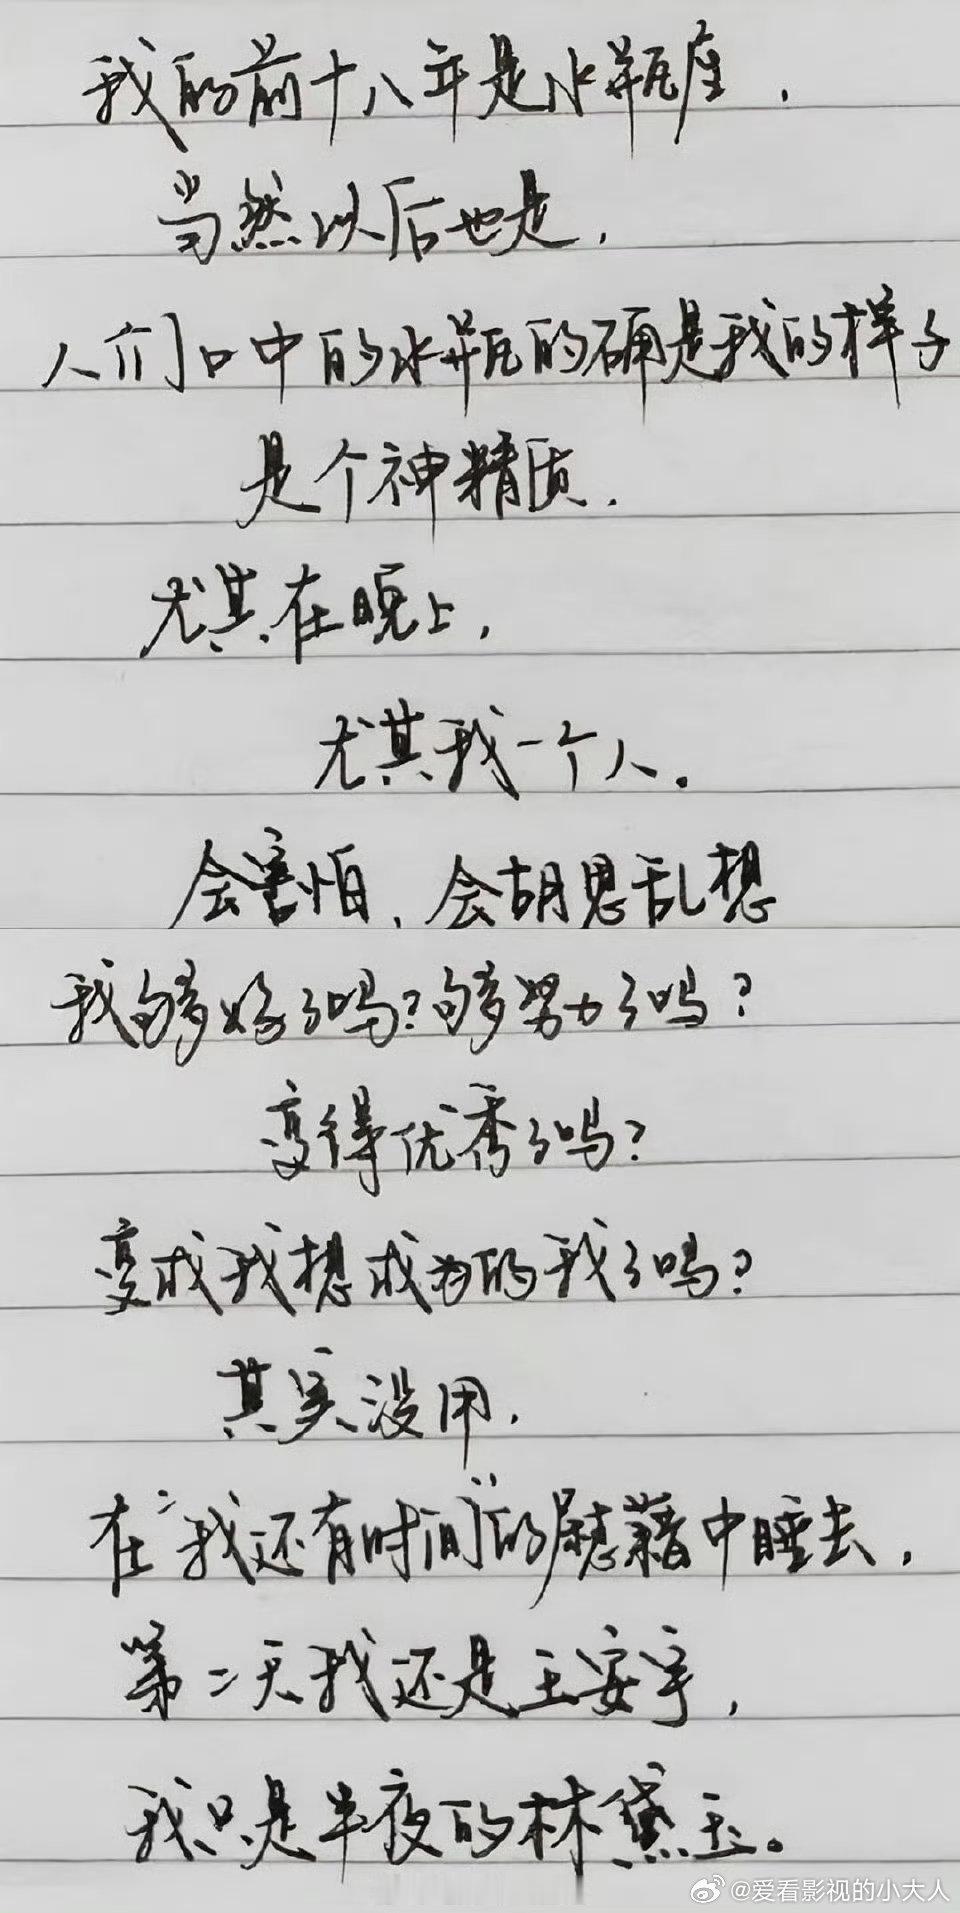 我的前十八年是水瓶座，
当然以后也是，
人们口中的水瓶的确是我的样子
是个神精质，
尤其在晚上，
尤其我一个人。
会害怕，会胡思乱想
我够好了吗？够努力了吗？
变得优秀了吗？
变成我想成为的我了吗？
其实没用，
在“我还有时间”的慰藉中睡去，
第二天我还是王安宇，
我只是半夜的林黛玉。
@爱看影视的小大人